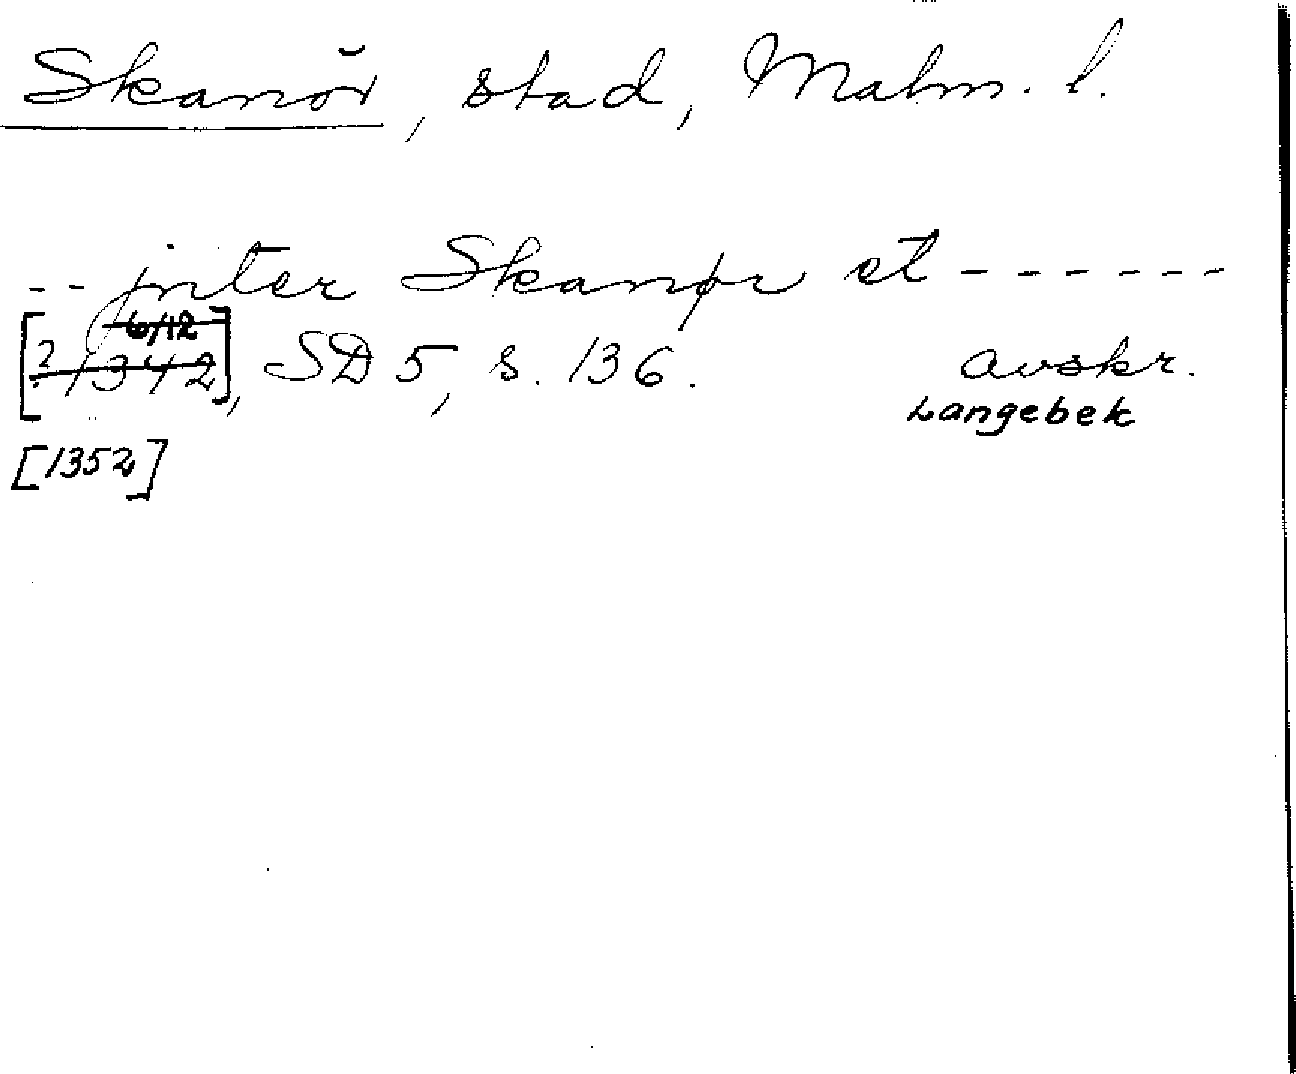 Skanör, stad, Malm. l.
-- jnter Skanør et ------
6/12
[? 1342], SD 5, s. 136. avskr.
Langebek
[1352]